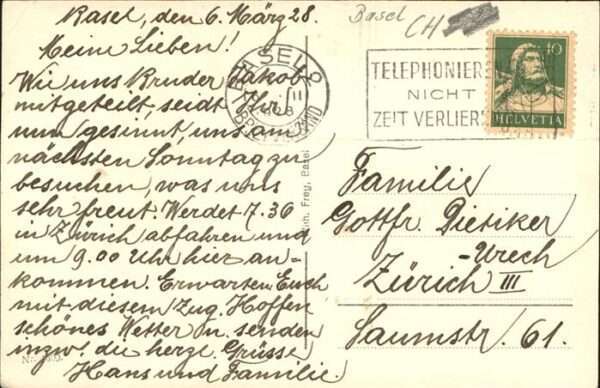 Basel, den 6. März 28.
Meine Lieben!
Wie uns Bruder Jakob
mitgeteilt, seidt Ihr
nun gesinnt, uns am
nächsten Sonntag zu
besuchen, was uns
sehr freut. Werdet 7.36
in Zürich abfahren und
um 9.00 Uhr hier an-
kommen. Erwarten Euch
mit diesem Zug. Hoffen
schönes Wetter u. senden
inzw. die herzl. Grüsse
Hans und Familie
Basel
CH
BASEL 2
TELEPHONIER
NICHT
ZEIT VERLIER
40
HELVETIA
Frey, Basel
Familie
Gottfr. Dietiker
-Urech
Zürich III
Saumstr. 61.